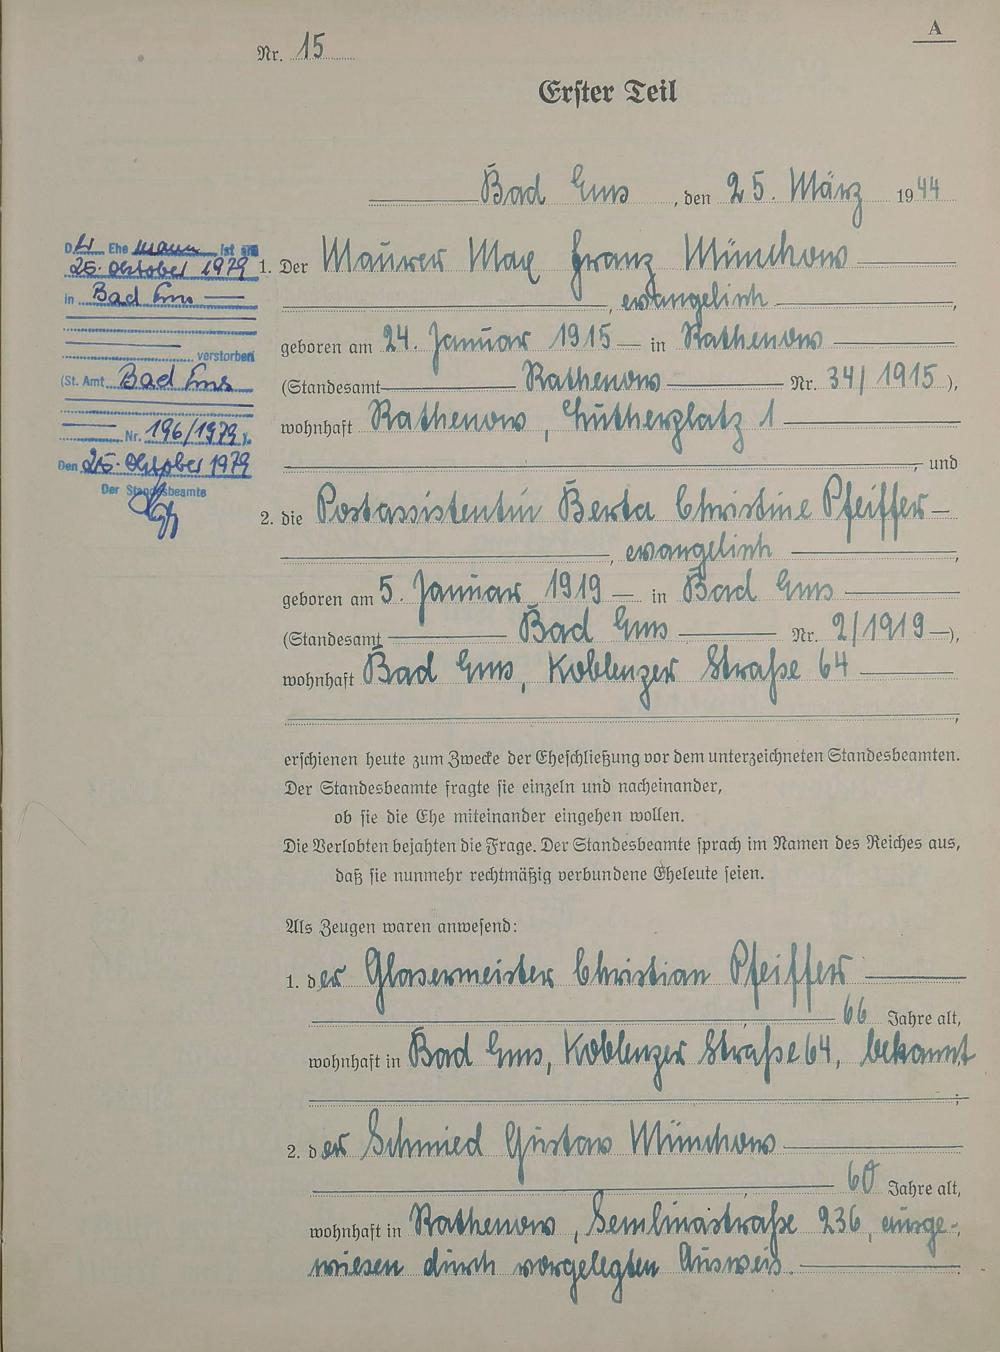 A
Nr. 15
Erster Teil
Bad Ems, den 25. März 1944
Der Ehemann ist am
25. Oktober 1979
in Bad Ems
verstorben
(St. Amt Bad Ems
Nr. 196/1979).
Den 25. Oktober 1979
Der Standesbeamte
1. Der Maurer Max Franz Münchow
, evangelisch,
geboren am 24. Januar 1915 in Rathenow
(Standesamt Rathenow Nr. 34/1915),
wohnhaft Rathenow, Lutherplatz 1
, und
2. die Postassistentin Berta Christine Pfeiffer
, evangelisch,
geboren am 5. Januar 1919 in Bad Ems
(Standesamt Bad Ems Nr. 2/1919),
wohnhaft Bad Ems, Koblenzer Straße 64
,
erschienen heute zum Zwecke der Eheschließung vor dem unterzeichneten Standesbeamten.
Der Standesbeamte fragte sie einzeln und nacheinander,
ob sie die Ehe miteinander eingehen wollen.
Die Verlobten bejahten die Frage. Der Standesbeamte sprach im Namen des Reiches aus,
daß sie nunmehr rechtmäßig verbundene Eheleute seien.
Als Zeugen waren anwesend:
1. der Glasermeister Christian Pfeiffer
66 Jahre alt,
wohnhaft in Bad Ems, Koblenzer Straße 64, bekannt
;
2. der Schmied Gustav Münchow
60 Jahre alt,
wohnhaft in Rathenow, Semlinerstraße 236, ausge-
wiesen durch vorgelegten Ausweis.